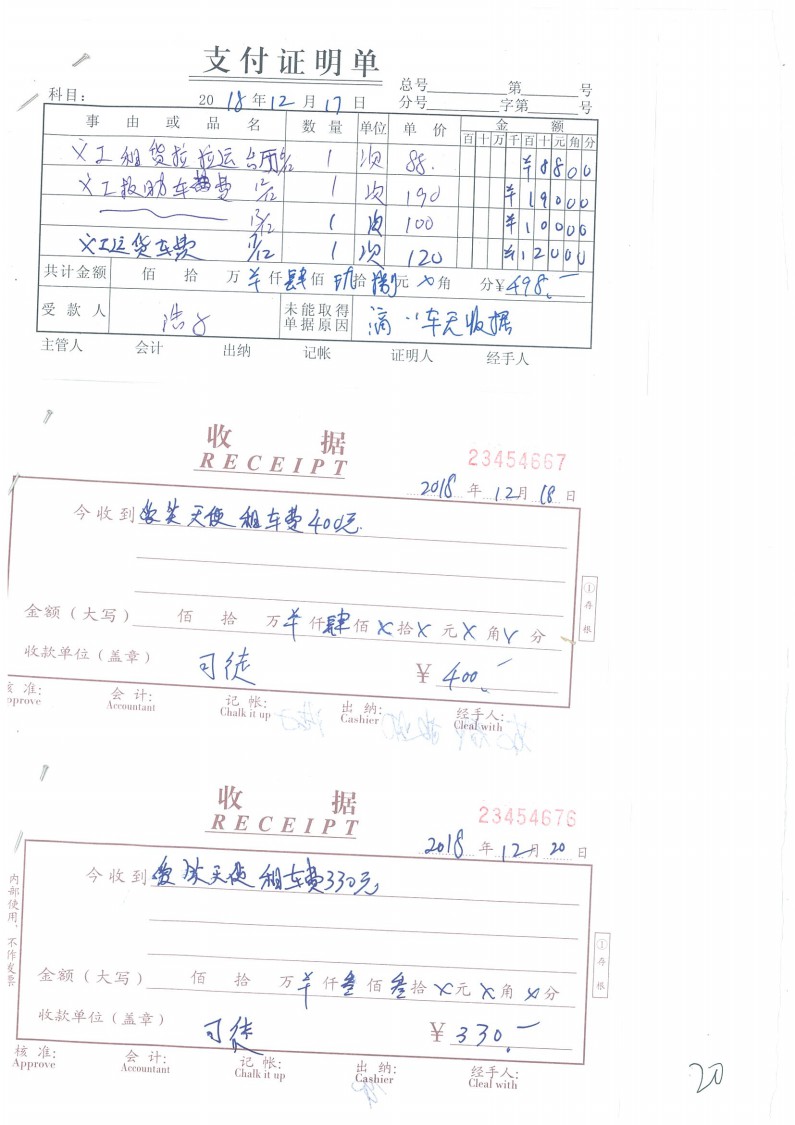 支付证明单
总号 第 号
科目: 2018年12月17日 分号 字第 号
事由或品名 数量 单位 单价 金额
百十万千百十元角分
义工租货拉拉运 1 次 88. ¥8800
义工 车费 1 次 190 ¥19000
1 次 100 ¥10000
义工运货车费 1 次 120 ¥12000
共计金额 佰 拾 万 仟肆佰玖拾捌元 角 分¥498.
受款人 未能取得单据原因 滴 车无收据
主管人 会计 出纳 记帐 证明人 经手人
收据
RECEIPT
23454667
2018年12月18日
今收到 天使租车费400元
金额(大写) 佰 拾 万 仟肆佰X拾X元X角 分
收款单位(盖章) 司徒 ¥400.
核准: 会计: 记帐: 出纳: 经手人:
Approve Accountant Chalk it up Cashier Cleal with
①存根
收据
RECEIPT
23454676
2018年12月20日
今收到 天使租车费330元
内部使用,不作发票
金额(大写) 佰 拾 万 仟叁佰叁拾X元X角X分
收款单位(盖章) 司徒 ¥330.
核准: 会计: 记帐: 出纳: 经手人:
Approve Accountant Chalk it up Cashier Cleal with
①存根
20